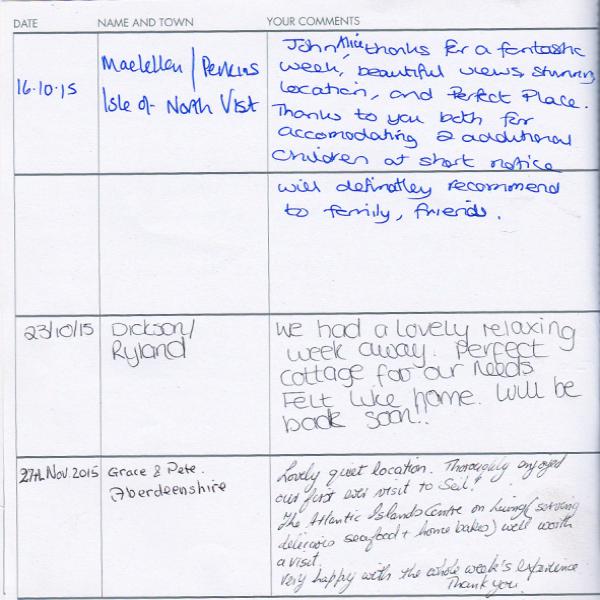 DATE NAME AND TOWN YOUR COMMENTS
16.10.15
Maclellan / Perkins
Isle of North Uist
John Alice thanks for a fantastic
week, beautiful views, stunning
location, and Perfect Place.
Thanks to you both for
accomodating 2 additional
children at short notice
will definatley recommend
to family, friends.
23/10/15
Dickson/
Ryland
We had a lovely relaxing
week away. Perfect
cottage for our needs
Felt like home. Will be
back soon!!
27th Nov 2015
Grace & Pete.
Aberdeenshire
Lovely quiet location. Thoroughly enjoyed
our first ever visit to Seil!
The Atlantic Islands Centre on Luing (serving
delicious seafood + home bakes) well worth
a visit.
Very happy with the whole week's experience.
Thank you.